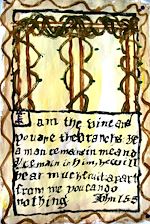 I am the vine and
you are the branchs. If
a man remains in me and
I remain in Him, he will
bear much fruit apart
from me you can do
nothing John 15:5